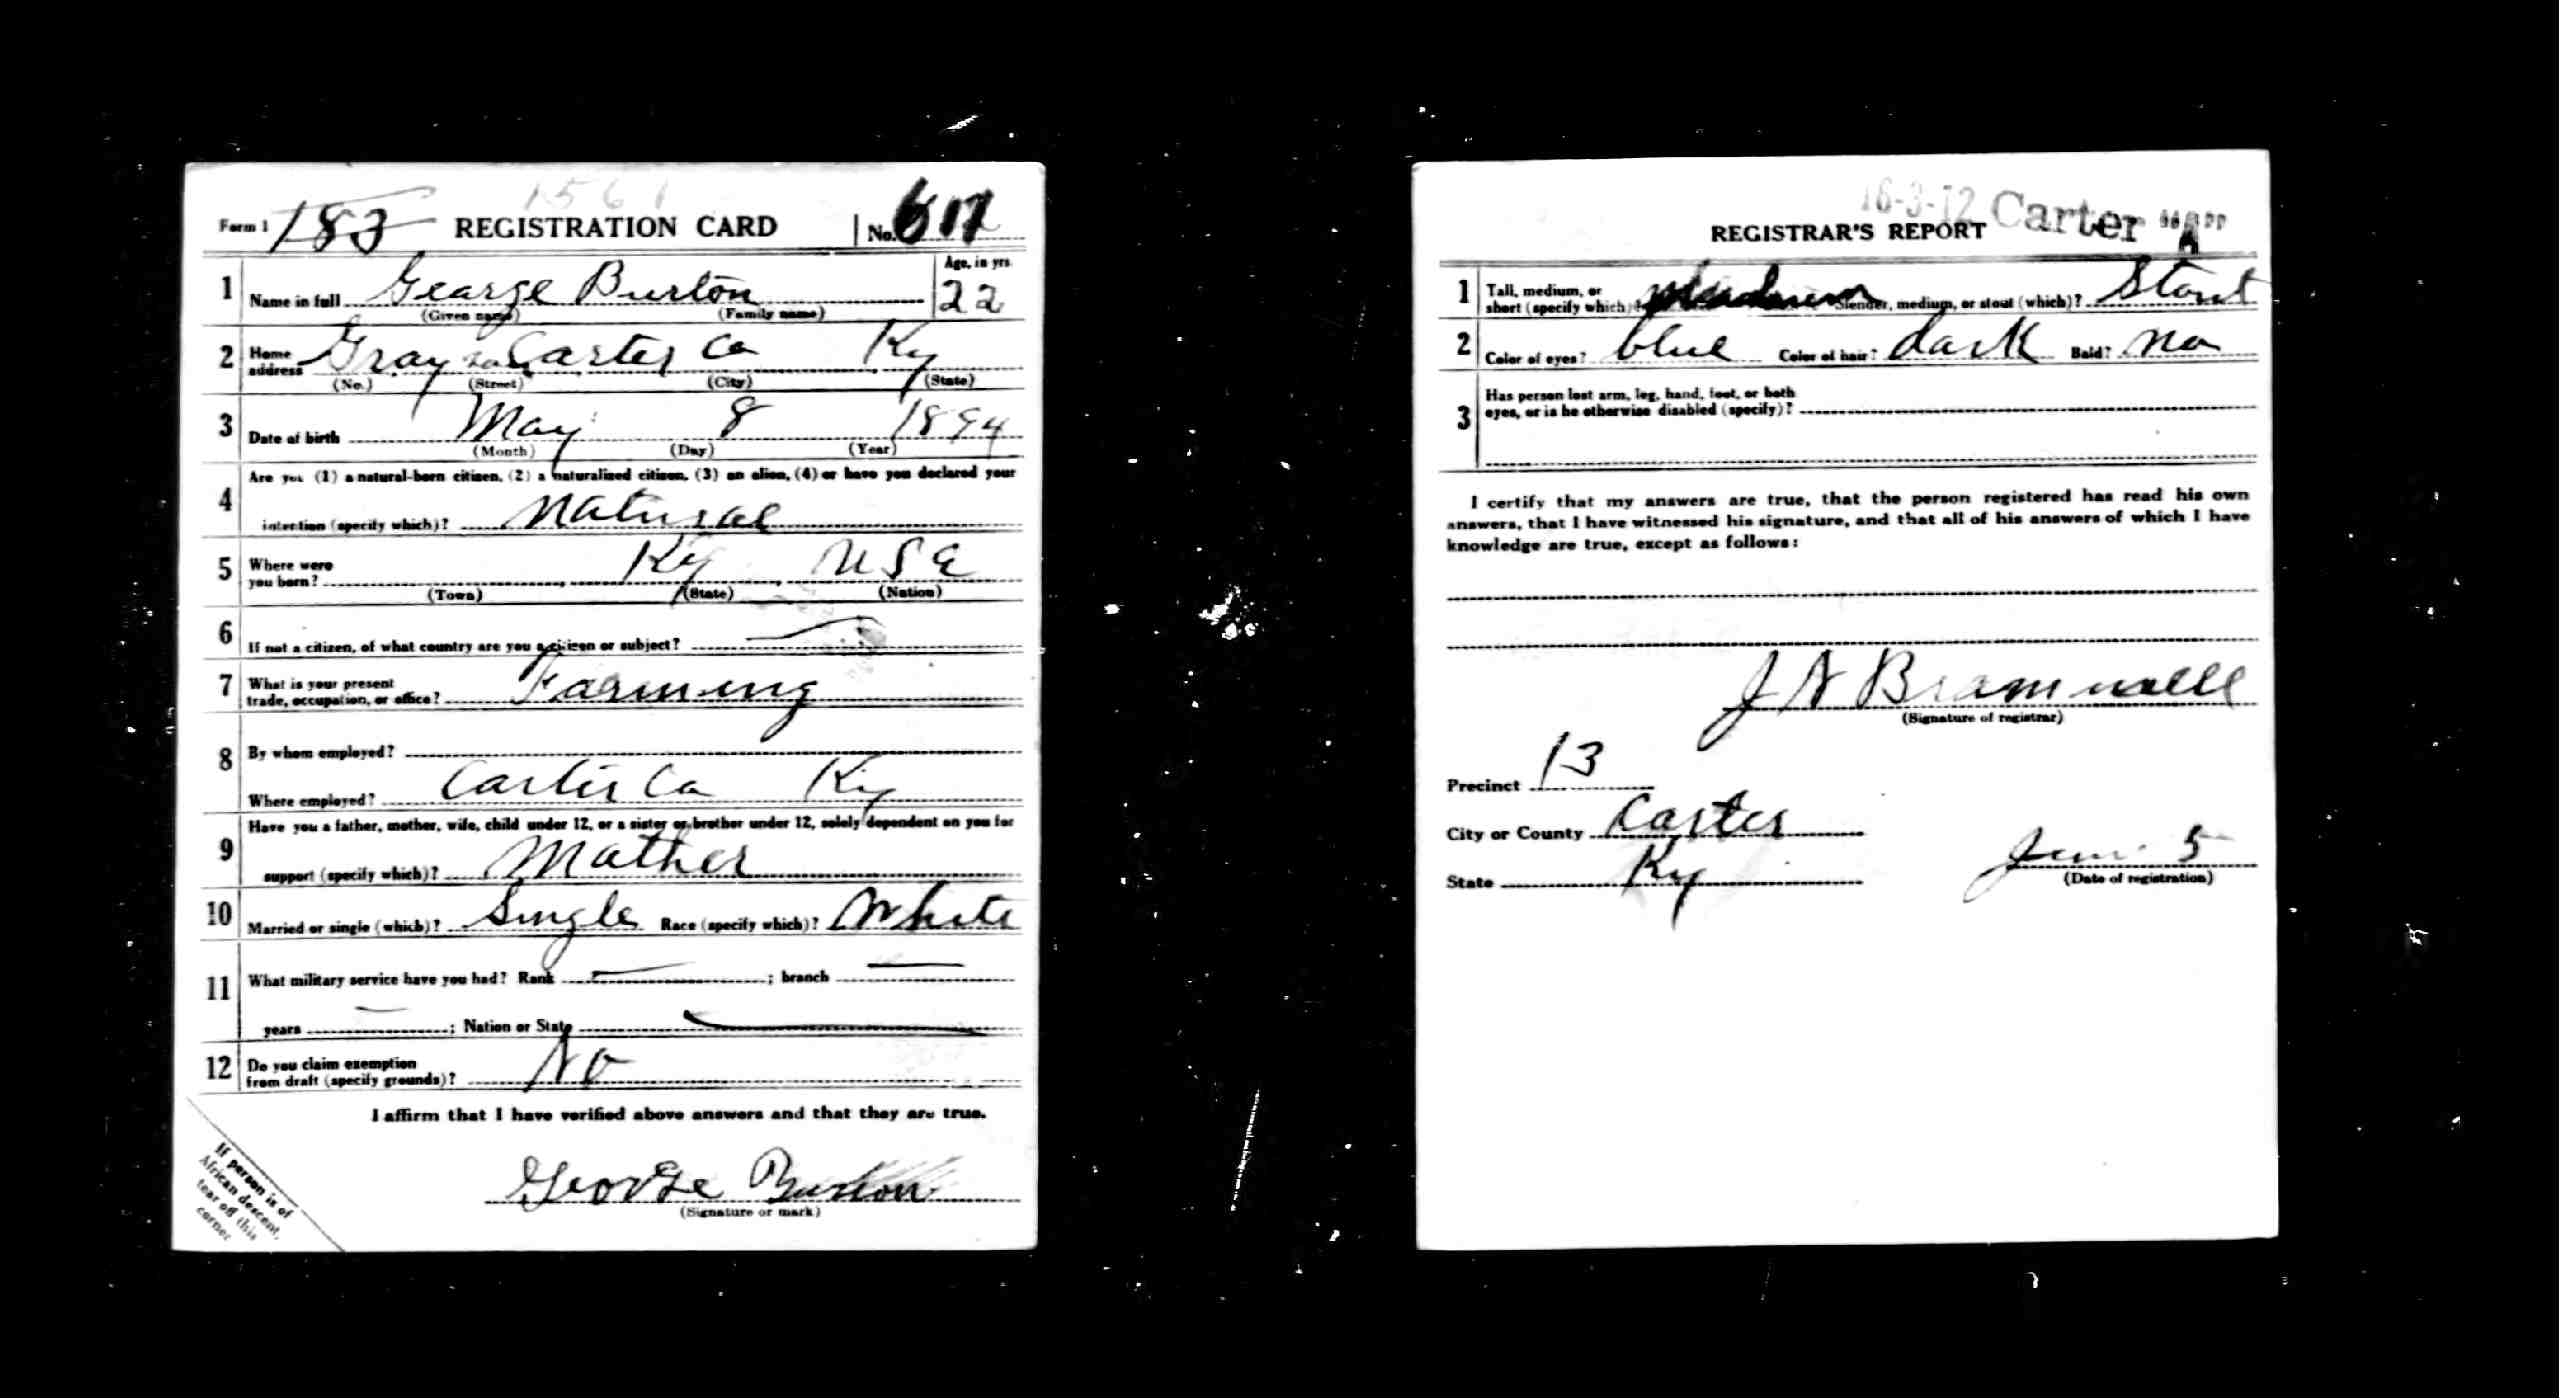 1561
Form 1 183 REGISTRATION CARD No.
1 Name in full George Burton Age, in yrs. 22
(Given name) (Family name)
2 Home address Grayson Carter Co Ky
(No.) (Street) (City) (State)
3 Date of birth May 8 1894
(Month) (Day) (Year)
4 Are you (1) a natural-born citizen, (2) a naturalized citizen, (3) an alien, (4) or have you declared your
intention (specify which)? Natural
5 Where were you born? Ky U S A
(Town) (State) (Nation)
6 If not a citizen, of what country are you a citizen or subject?
7 What is your present trade, occupation, or office? Farming
8 By whom employed?
Where employed? Carter Co Ky
9 Have you a father, mother, wife, child under 12, or a sister or brother under 12, solely dependent on you for
support (specify which)? Mother
10 Married or single (which)? Single Race (specify which)? White
11 What military service have you had? Rank ; branch
years ; Nation or State
12 Do you claim exemption from draft (specify grounds)? No
I affirm that I have verified above answers and that they are true.
George Burton
(Signature or mark)
If person is of
African descent,
tear off this
corner
16-3-12 Carter
REGISTRAR'S REPORT
1 Tall, medium, or short (specify which)? Medium Slender, medium, or stout (which)? Stout
2 Color of eyes? blue Color of hair? dark Bald? no
3 Has person lost arm, leg, hand, foot, or both
eyes, or is he otherwise disabled (specify)?
I certify that my answers are true, that the person registered has read his own
answers, that I have witnessed his signature, and that all of his answers of which I have
knowledge are true, except as follows:
J N Bramwell
(Signature of registrar)
Precinct 13
City or County Carter
State Ky June 5
(Date of registration)